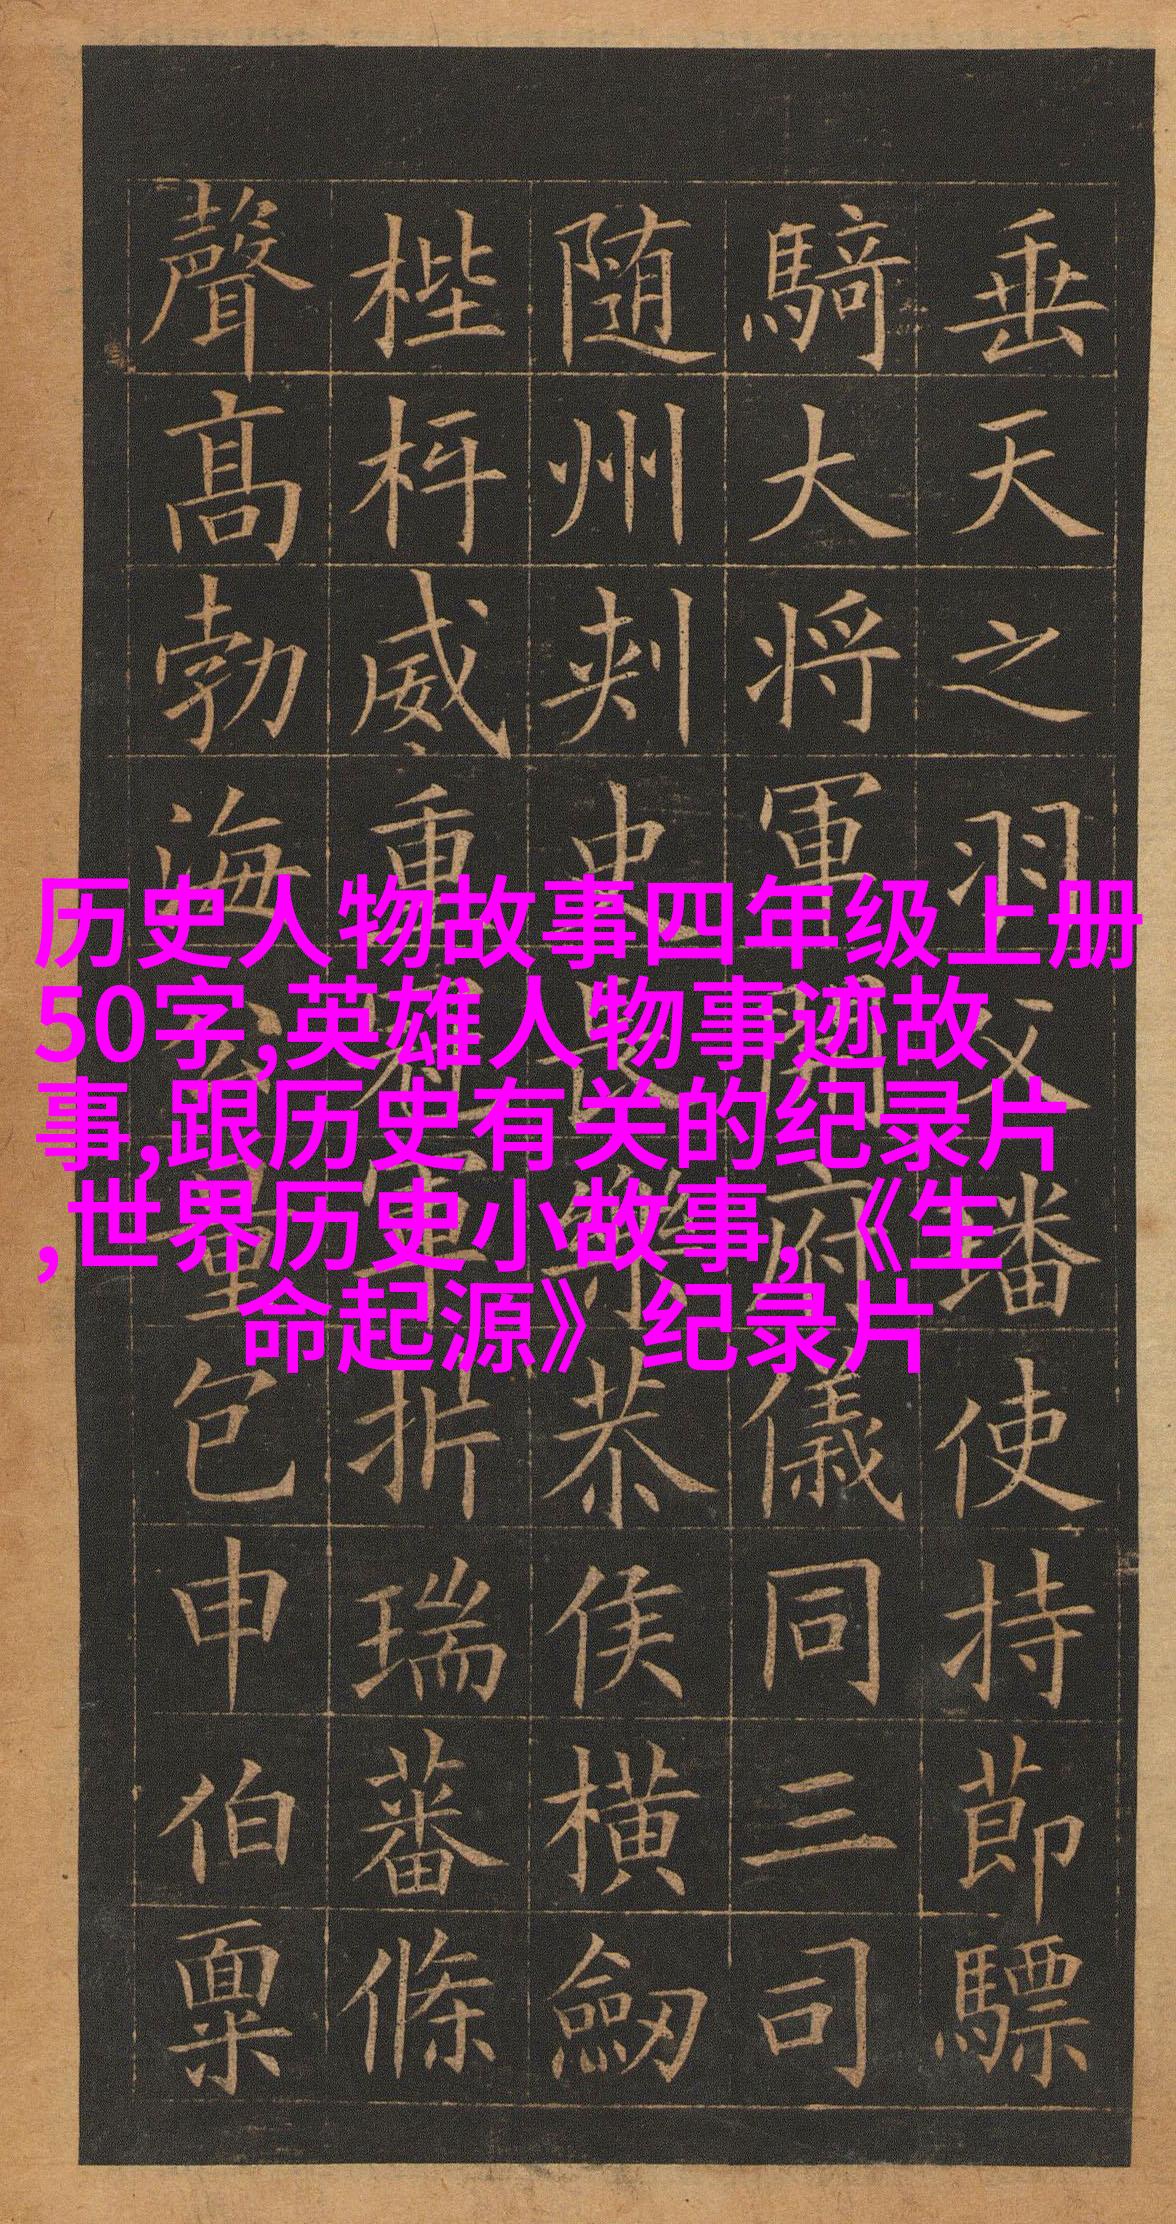 历史人物故事四年级上册
50字,英雄人物事迹故
事,跟历史有关的纪录片
,世界历史小故事,《生
命起源》纪录片
垂天之羽父璠使持莭驃
騎大将軍開府儀同三司
随州刾史長樂恭侯橫劒
梐枑威重冠軍析瑞蕃條
聲髙勃海公量包申伯稟